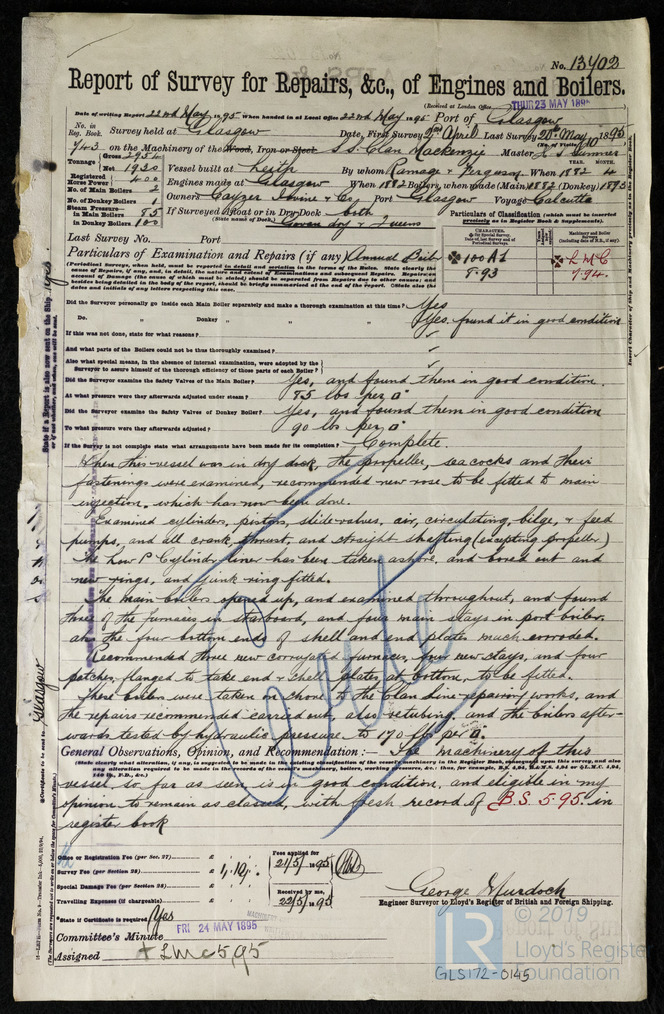 No. 13402
Report of Survey for Repairs, &c., of Engines and Boilers.
(Received at London Office THUR 23 MAY 1895
Date of writing Report 22nd May 1895 When handed in at Local Office 22nd May 1895 Port of Glasgow
No. in Reg. Book. Survey held at Glasgow Date, First Survey 2nd April Last Survey 20th May 1895
(No. of Visits 10)
743 on the Machinery of the Wood, Iron or Steel S.S. Clan Mackenzie Master
Tonnage Gross 2954
Net 1930
Vessel built at Leith By whom Ramage & Ferguson When 1882 4
YEAR. MONTH.
Registered Horse Power 400
Engines made at Glasgow When 1882 Boilers, when made (Main) 1882 (Donkey) 1893
No. of Main Boilers 2
Owners Cayzer Irvine & Co Port Glasgow Voyage Calcutta
No. of Donkey Boilers 1
Steam Pressure in Main Boilers 85
in Donkey Boilers 100
If Surveyed Afloat or in Dry Dock both
(State name of Dock.) Govan dry & Queens
Particulars of Classification (which must be inserted precisely as in Register Book & Supplements).
Last Survey No. Port
Particulars of Examination and Repairs (if any) Annual
100 A1
8.93
LMC
7.94
Did the Surveyor personally go inside each Main Boiler separately and make a thorough examination at this time? Yes
Do. Donkey " " " Yes. found it in good condition
If this was not done, state for what reasons?
And what parts of the Boilers could not be thoroughly examined?
Also what special means, in the absence of internal examination, were adopted by the Surveyor to assure himself of the thorough efficiency of those parts of each Boiler?
Did the Surveyor examine the Safety Valves of the Main Boiler? Yes, and found them in good condition.
At what pressure were they afterwards adjusted under steam? 85 lbs per □"
Did the Surveyor examine the Safety Valves of Donkey Boiler? Yes, and found them in good condition
To what pressure were they afterwards adjusted? 90 lbs per □"
If the Survey is not complete state what arrangements have been made for its completion? Complete.
When this vessel was in dry dock, the propeller, sea cocks and their
fastenings were examined, recommended new rose to be fitted to main
injection. which has now been done.
Examined cylinders, pistons, slide valves, air, circulating, bilge, & feed
pumps, and all crank, thrust, and straight shafting (excepting propeller)
The Low P Cylindr liner has been taken ashore, and bored out and
new rings, and junk ring fitted.
The main boilers opened up, and examined throughout, and found
three of the furnaces in starboard, and four main stays in port boiler.
also the four bottom ends of shell and end plates much corroded.
Recommended three new corrugated furnaces, four new stays, and four
patches, flanged to take end & shell plates at bottom, to be fitted.
These boilers were taken on shore to the Clan Line repairing works, and
the repairs recommended carried out, also retubing. and the boilers after-
wards tested by hydraulic pressure to 170 lbs per □".
General Observations, Opinion, and Recommendation:— The machinery of this
vessel so far as seen is in good condition, and eligible in my
opinion to remain as classed, with fresh record of B.S. 5.95. in
register book
Office or Registration Fee (per Sec. 27) £
Survey Fee (per Section 28) £ 1.10.
Special Damage Fee (per Section 28) £
Travelling Expenses (if chargeable) £
Fees applied for 21/5/1895
Received by me, 22/5/1895
State if Certificate is required Yes
George Murdoch
Engineer Surveyor to Lloyd's Register of British and Foreign Shipping.
Committee's Minute FRI 24 MAY 1895
Assigned + LMC 5,95
© 2019
Lloyd's Register
Foundation
GLS172-0145